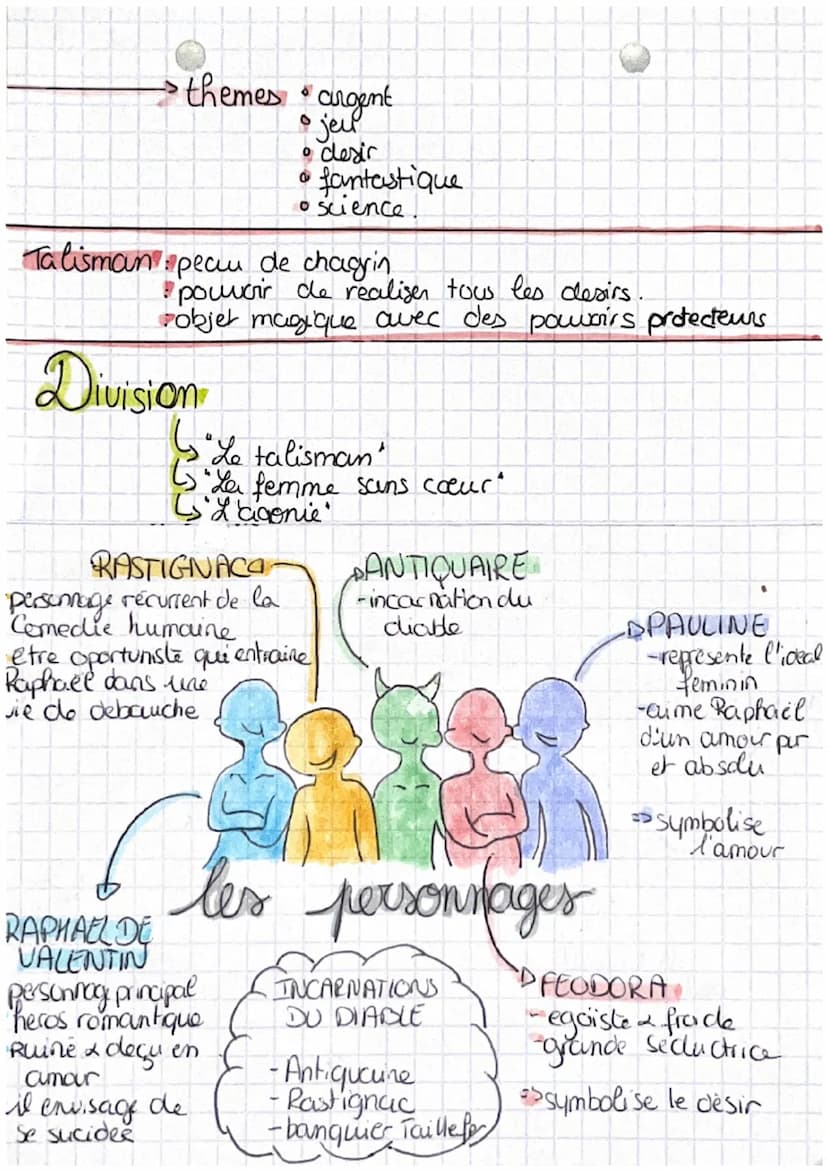 themes
• argent
• jeu
• desir
• fantastique
• science.
Talisman : peau de chagrin
: pouvoir de realiser tous les desirs.
: objet magique avec des pouvoirs protecteurs
Division
"Le talisman"
"La femme sans cœur"
"L'agonie"
RASTIGNAC
personnage récurrent de la
Comedie humaine
etre oportuniste qui entraine
Raphaël dans une
vie de debauche
ANTIQUAIRE
- incarnation du
diable
PAULINE
- représente l'ideal
feminin
- aime Raphaël
d'un amour pur
et absolu
⇒ symbolise
l'amour
les personnages
RAPHAEL DE
VALENTIN
personnag principal
heros romantique
Ruiné & deçu en
amour
il envisage de
se sucider
INCARNATIONS
DU DIABLE
- Antiquaire
- Rastignac
- banquier Taillefer
FEODORA
- egoïste & froide
- grande séductrice
⇒ symbolise le désir